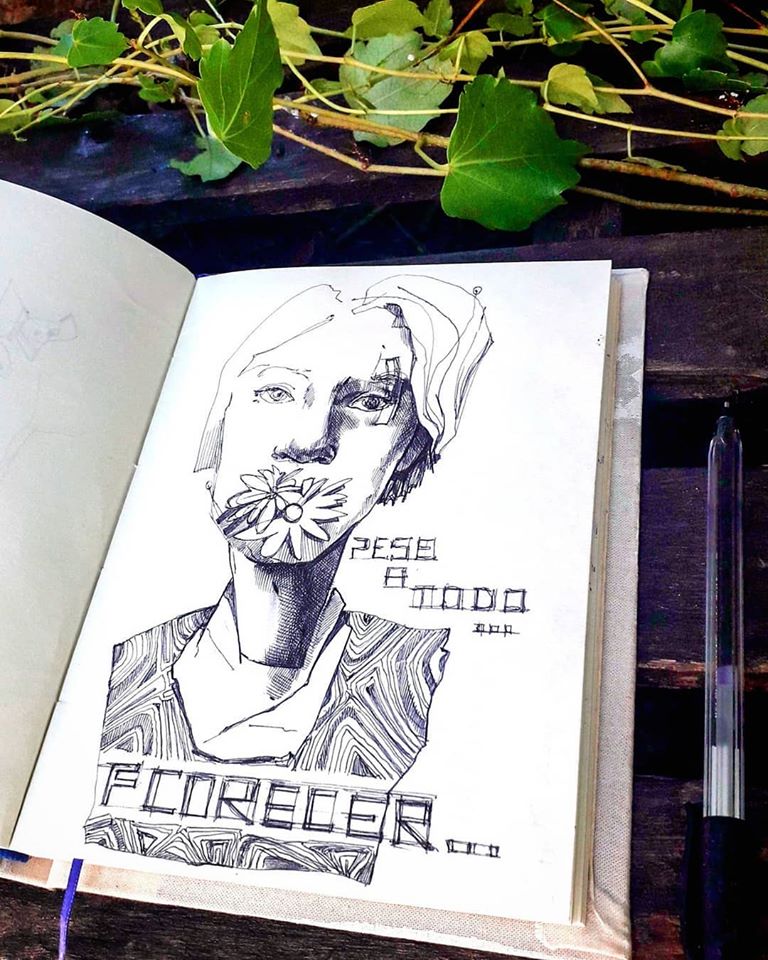 PESO
A
TODO
...
FLORECER...